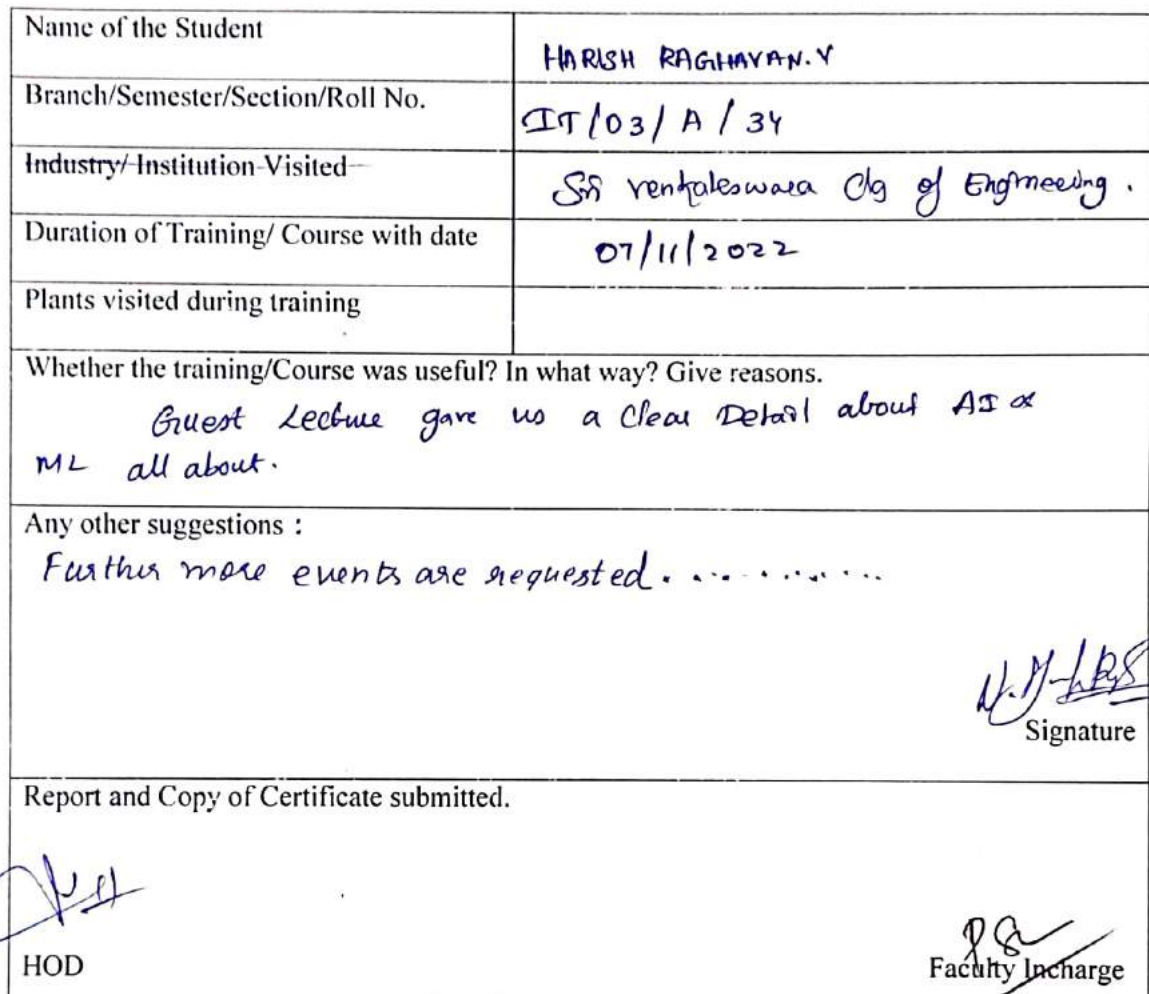 Name of the Student
HARISH RAGHAVAN.V
Branch/Semester/Section/Roll No.
IT/03/A/34
Industry/ Institution Visited
Sri venkateswara Clg of Engineering.
Duration of Training/ Course with date
07/11/2022
Plants visited during training
Whether the training/Course was useful? In what way? Give reasons.
Guest Lecture gave us a Clear Detail about AI &
ML all about.
Any other suggestions :
Further more events are requested.............
Signature
Report and Copy of Certificate submitted.
HOD
Faculty Incharge